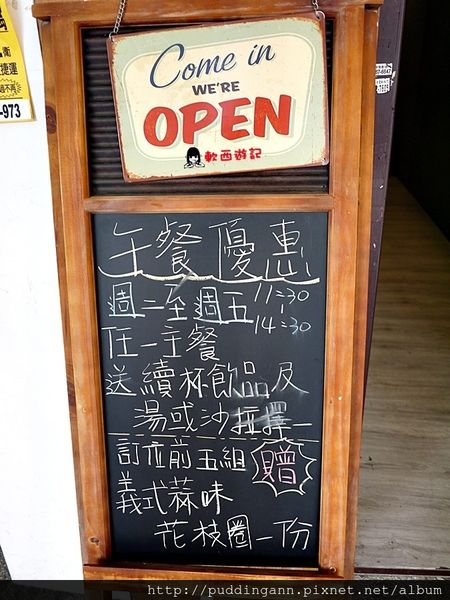 衛
捷運
-973
Come in
WE'RE
OPEN
軟西遊記
午餐優惠
週二至週五 11:30
14:30
任一主餐
送續杯飲品及
湯或沙拉擇一
訂位前五組 贈
義式蒜味
花枝圈一份
http://puddingann.pixnet.net/album